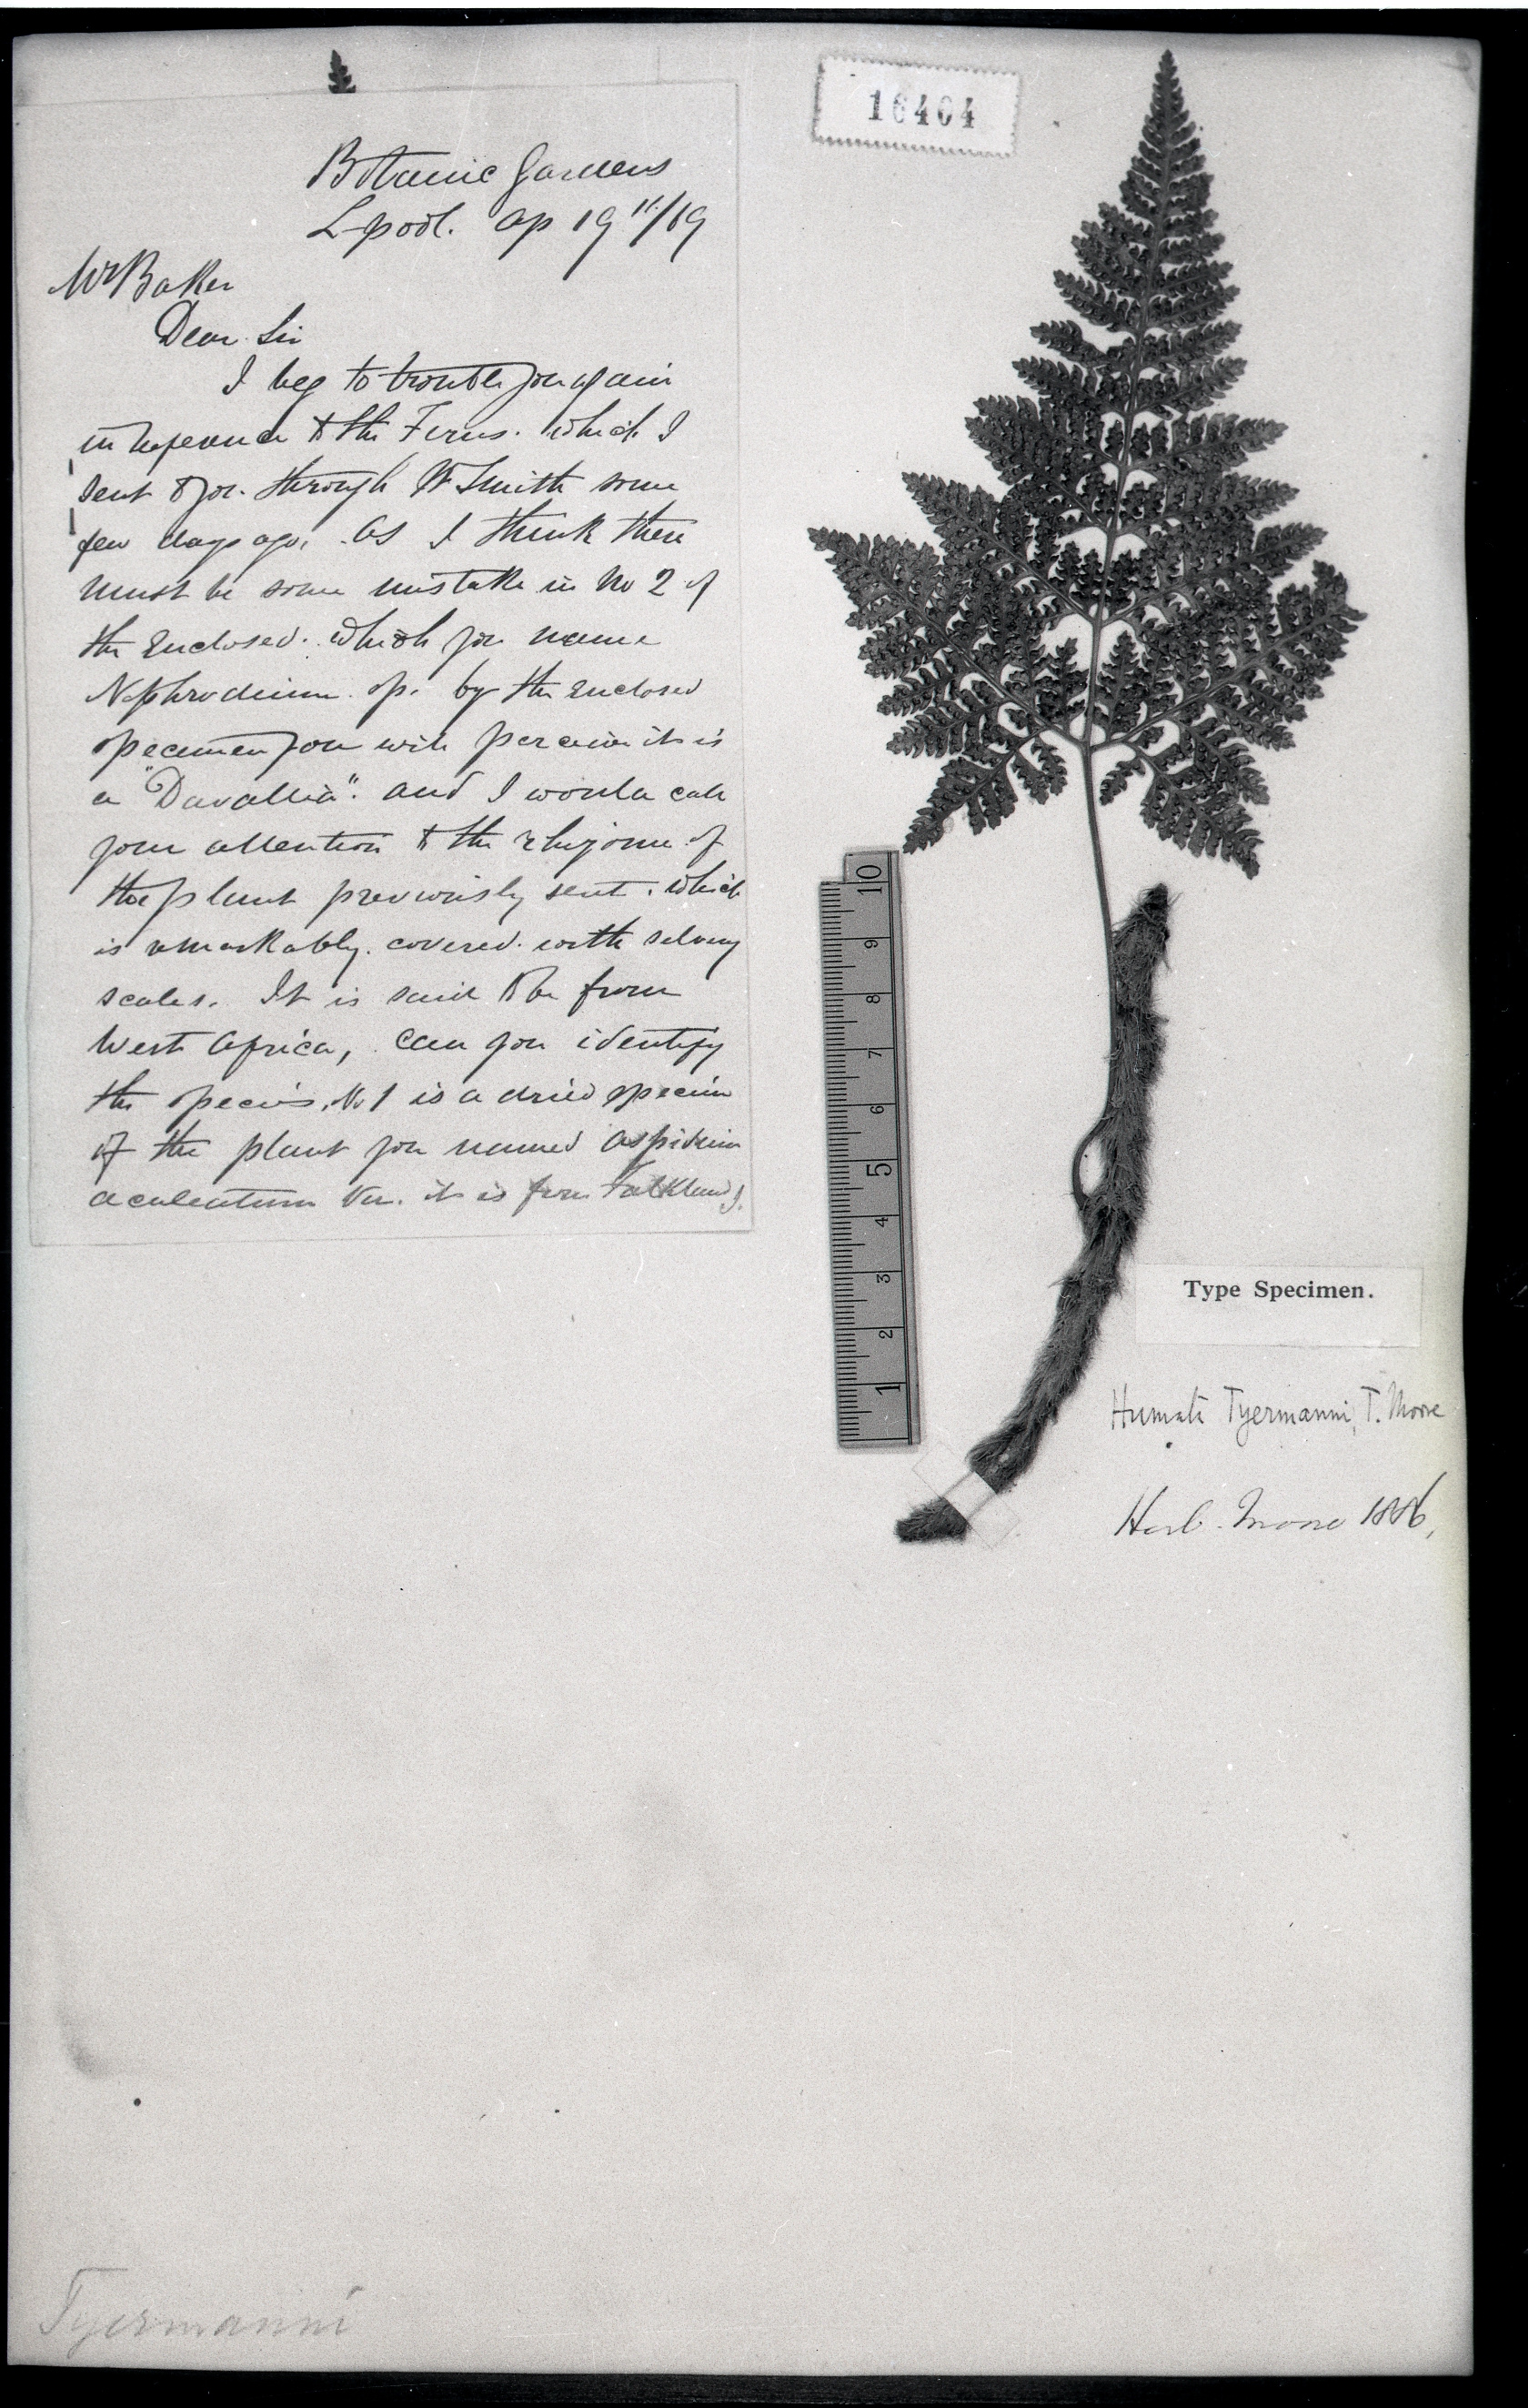 16404
Botanic Gardens
L-pool. Ap 19th/69
Mr Baker
Dear Sir
I beg to trouble you again
in reference to the Ferns. which I
sent to you. through Mr Smith some
few days ago, As I think there
must be some mistake in No 2 of
the Enclosed. which you name
Nephrodium sp. by the Enclosed
specimen you will perceive it is
a "Davallia". and I would call
your attention to the rhizome of
the plant previously sent. which
is remarkably. covered with silvery
scales. It is said to be from
West Africa, can you identify
the species. No 1 is a dried specim
of the plant you named Aspidium
aculeatum Var. it is from Falkland I.
10
9
8
7
6
5
4
3
2
1
Type Specimen.
Humata Tyermanni, T. Moore
Herb. Moore 1886,
Tyermanni